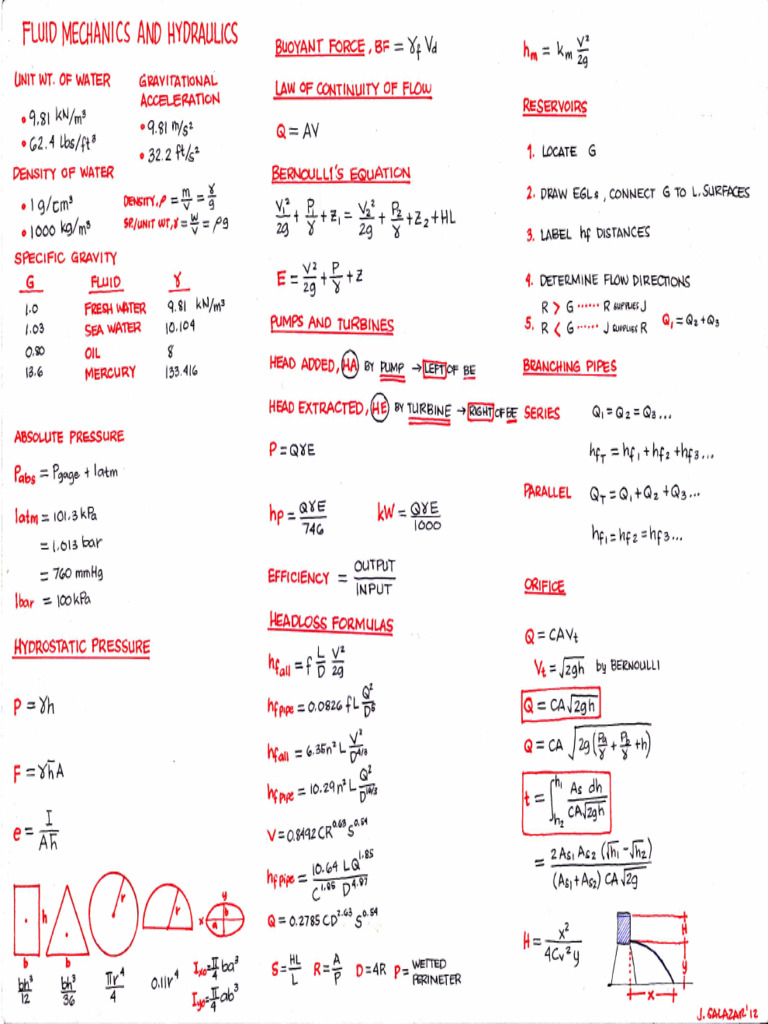 FLUID MECHANICS AND HYDRAULICS
UNIT WT. OF WATER
• 9.81 kN/m³
• 62.4 lbs/ft³
GRAVITATIONAL
ACCELERATION
• 9.81 m/s²
• 32.2 ft/s²
DENSITY OF WATER
• 1 g/cm³
• 1000 kg/m³
DENSITY, ρ = m/V = γ/g
SP./UNIT WT, γ = W/V = ρg
SPECIFIC GRAVITY
G FLUID γ
1.0 FRESH WATER 9.81 kN/m³
1.03 SEA WATER 10.104
0.80 OIL 8
13.6 MERCURY 133.416
ABSOLUTE PRESSURE
Pabs = Pgage + 1atm
1atm = 101.3 kPa
= 1.013 bar
= 760 mmHg
1bar = 100 kPa
HYDROSTATIC PRESSURE
P = γh
F = γh̄A
e = I/Ah̄
h
r
r
y
x
b
a
b
b
bh³/12
bh³/36
πr⁴/4
0.11r⁴
Ixo = π/4 ba³
Iyo = π/4 ab³
BUOYANT FORCE, BF = γf Vd
LAW OF CONTINUITY OF FLOW
Q = AV
BERNOULLI'S EQUATION
V₁²/2g + P₁/γ + Z₁ = V₂²/2g + P₂/γ + Z₂ + HL
E = V²/2g + P/γ + Z
PUMPS AND TURBINES
HEAD ADDED, HA BY PUMP → LEFT OF BE
HEAD EXTRACTED, HE BY TURBINE → RIGHT OF BE
P = QγE
hp = QγE/746
kW = QγE/1000
EFFICIENCY = OUTPUT/INPUT
HEADLOSS FORMULAS
hf all = f L/D V²/2g
hf pipe = 0.0826 fL Q²/D⁵
hf all = 6.35n² L V²/D^4/3
hf pipe = 10.29n² L Q²/D^16/3
V = 0.8492 CR^0.63 S^0.54
hf pipe = 10.64 LQ^1.85/C^1.85 D^4.87
Q = 0.2785 CD^2.63 S^0.54
S = HL/L R = A/P D = 4R P = WETTED PERIMETER
hm = km V²/2g
RESERVOIRS
1. LOCATE G
2. DRAW EGLs, CONNECT G TO L. SURFACES
3. LABEL hf DISTANCES
4. DETERMINE FLOW DIRECTIONS
R > G ······ R SUPPLIES J
5. R < G ······ J SUPPLIES R Q₁ = Q₂ + Q₃
BRANCHING PIPES
SERIES Q₁ = Q₂ = Q₃...
hfT = hf₁ + hf₂ + hf₃...
PARALLEL QT = Q₁ + Q₂ + Q₃...
hf₁ = hf₂ = hf₃...
ORIFICE
Q = CAVt
Vt = √2gh by BERNOULLI
Q = CA√2gh
Q = CA √2g(Pa/γ + PB/γ + h)
t = ∫h₂^h₁ As dh/CA√2gh
= 2 As₁ As₂ (√h₁ - √h₂)/(As₁ + As₂) CA√2g
H = x²/4Cv²y
H
y
x
J. SALAZAR '12